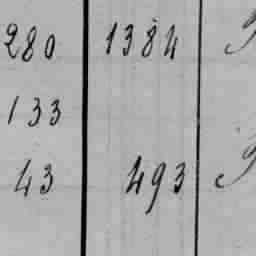 280 1384
133
43 493